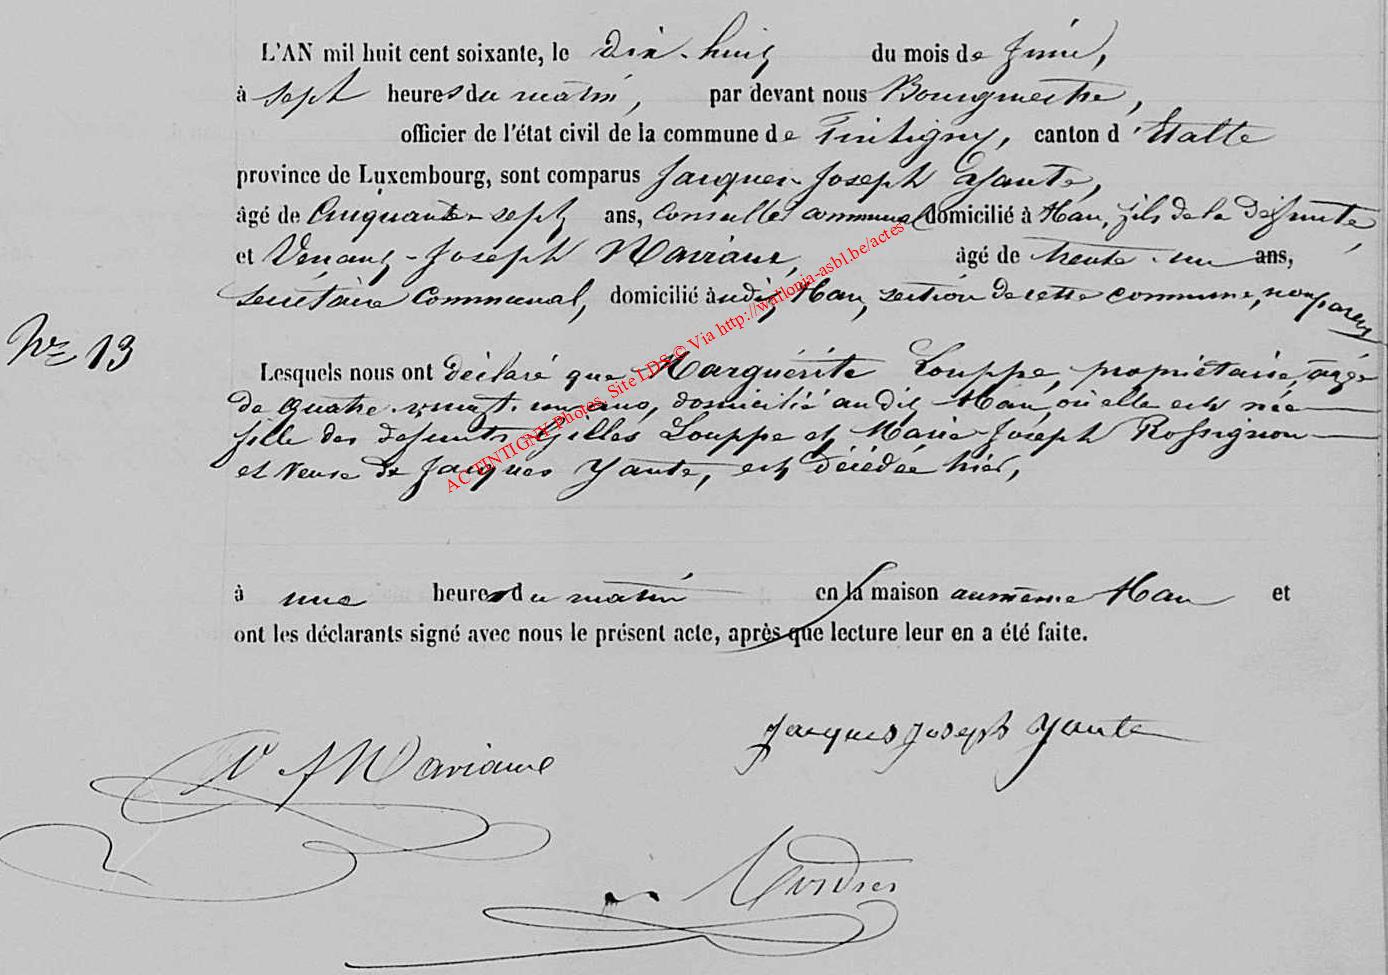 L'AN mil huit cent soixante, le dix-huit du mois de juin,
à sept heures du matin, par devant nous Bourgmestre,
officier de l'état civil de la commune de Tintigny, canton d'Etalle
province de Luxembourg, sont comparus Jacques-Joseph Yante,
âgé de Cinquante-sept ans, conseiller communal domicilié à Han, fils de la défunte,
et Venant-Joseph Maviaux, âgé de trente-un ans,
secrétaire communal, domicilié audit Han, section de cette commune, non parent
No 13
Lesquels nous ont déclaré que Marguérite Louppe, propriétaire, agée
de quatre-vingt-un ans, domicilié audit Han, où elle est née
fille des défunts Gilles Louppe et Marie-Joseph Rossignon
et veuve de Jacques Yante, est décédée hier,
à une heure du matin en la maison au même Han et
ont les déclarants signé avec nous le présent acte, après que lecture leur en a été faite.
Jacques Joseph Yante
V J Maviaux
AC TINTIGNY Photos, Site LDS © Via http://wallonia-asbl.be/actes